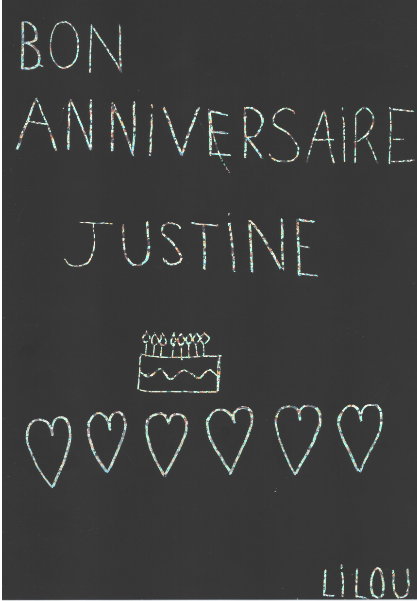 BON
ANNiVERSAiRE
JUSTiNE
LiLOU